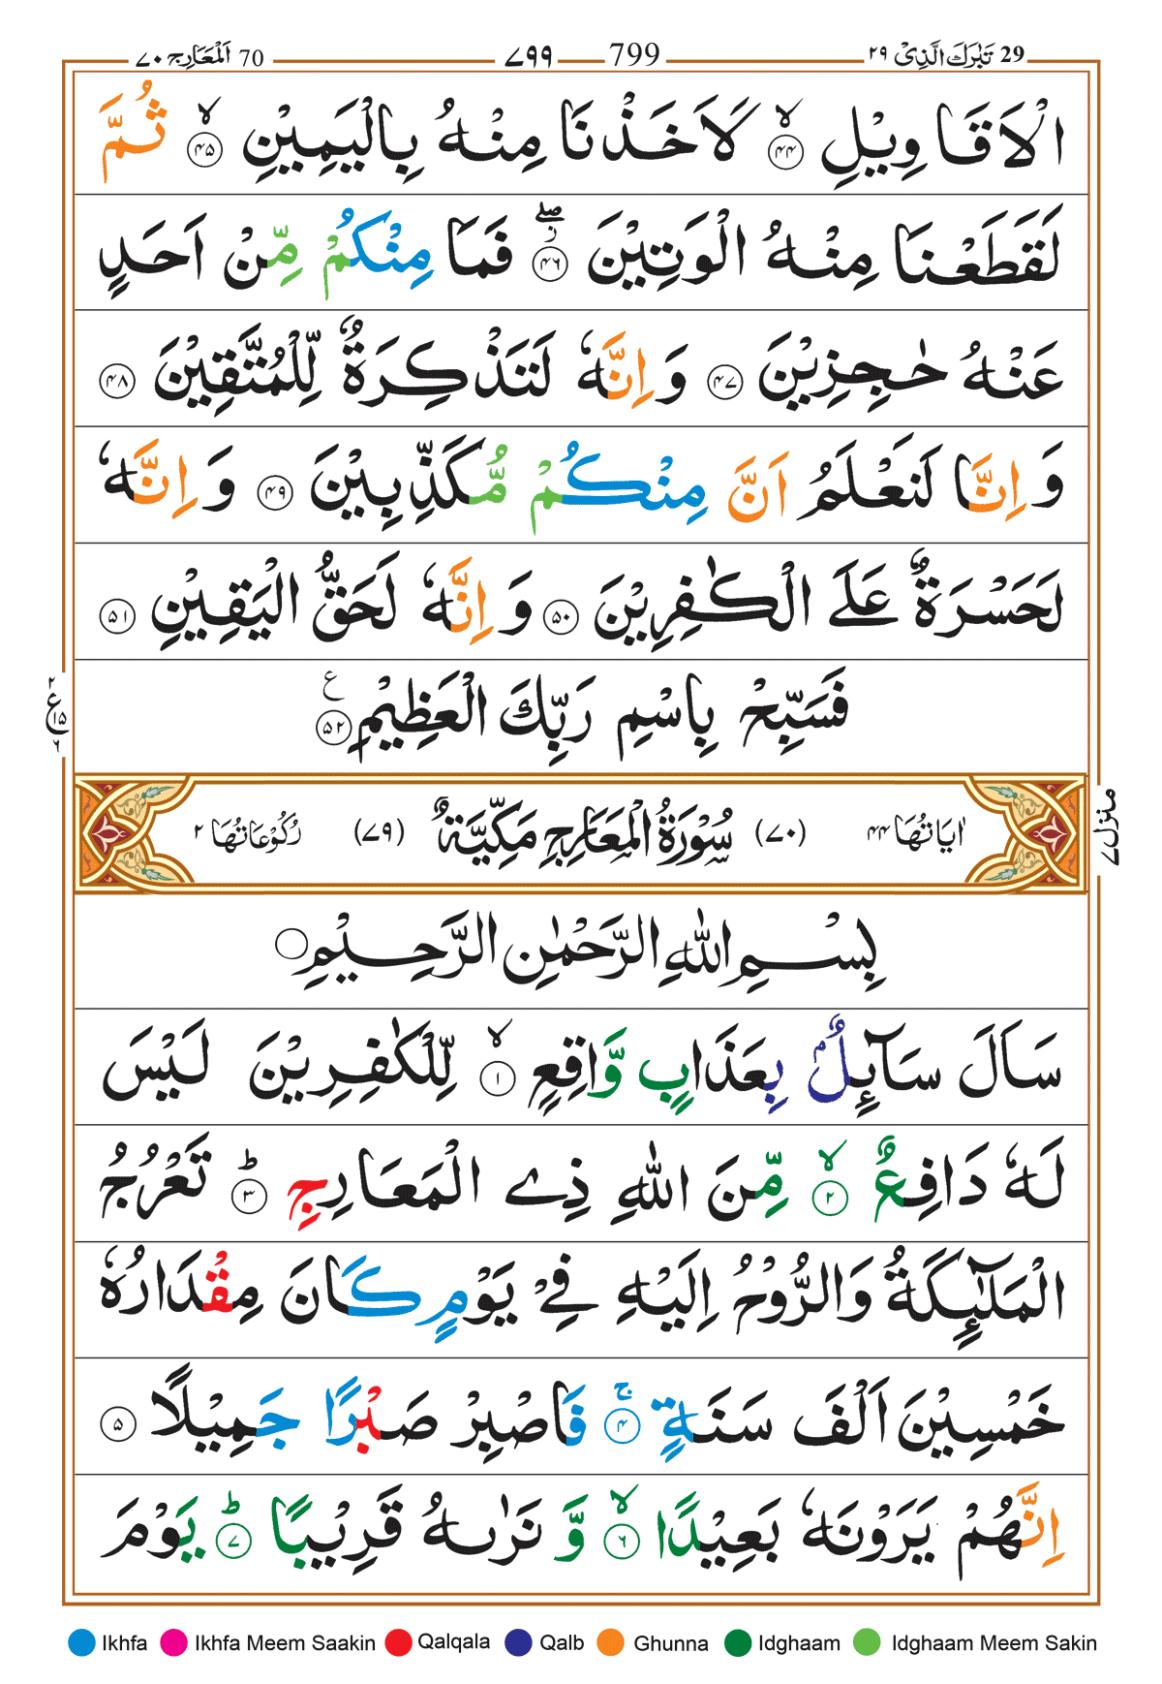 29 تَبٰرَكَ الَّذِیْ ٢٩ 799 ٧٩٩ 70 اَلْمَعَارِج ٧٠
الْاَقَاوِيْلِ ۙ‏﴿۴۴﴾ لَاَخَذْنَا مِنْهُ بِالْيَمِيْنِ ۙ‏﴿۴۵﴾ ثُمَّ
لَقَطَعْنَا مِنْهُ الْوَتِيْنَ ۖ ز ‏﴿۴۶﴾ فَمَا مِنْكُمْ مِّنْ اَحَدٍ
عَنْهُ حٰجِزِيْنَ ‏﴿۴۷﴾ وَاِنَّهٗ لَتَذْكِرَةٌ لِّلْمُتَّقِيْنَ ‏﴿۴۸﴾
وَاِنَّا لَنَعْلَمُ اَنَّ مِنْكُمْ مُّكَذِّبِيْنَ ‏﴿۴۹﴾ وَاِنَّهٗ
لَحَسْرَةٌ عَلَى الْكٰفِرِيْنَ ‏﴿۵۰﴾ وَاِنَّهٗ لَحَقُّ الْيَقِيْنِ ‏﴿۵۱﴾
فَسَبِّحْ بِاسْمِ رَبِّكَ الْعَظِيْمِ ‏﴿۵۲﴾ ع
٢ ع ١٥ ٦
اٰيَاتُهَا ۴۴ (٧٠) سُوْرَةُ الْمَعَارِجِ مَكِّيَّةٌ (٧٩) رُكُوْعَاتُهَا ٢
منزل ٧
بِسْمِ اللّٰهِ الرَّحْمٰنِ الرَّحِيْمِ
سَاَلَ سَآئِلٌۢ بِعَذَابٍ وَّاقِعٍ ۙ‏﴿۱﴾ لِّلْكٰفِرِيْنَ لَيْسَ
لَهٗ دَافِعٌ ۙ‏﴿۲﴾ مِّنَ اللّٰهِ ذِى الْمَعَارِجِ ؕ‏﴿۳﴾ تَعْرُجُ
الْمَلٰٓئِكَةُ وَالرُّوْحُ اِلَيْهِ فِىْ يَوْمٍ كَانَ مِقْدَارُهٗ
خَمْسِيْنَ اَلْفَ سَنَةٍ ۚ‏﴿۴﴾ فَاصْبِرْ صَبْرًا جَمِيْلًا ‏﴿۵﴾
اِنَّهُمْ يَرَوْنَهٗ بَعِيْدًا ۙ‏﴿۶﴾ وَّ نَرٰىهُ قَرِيْبًا ؕ‏﴿۷﴾ يَوْمَ
Ikhfa Ikhfa Meem Saakin Qalqala Qalb Ghunna Idghaam Idghaam Meem Sakin